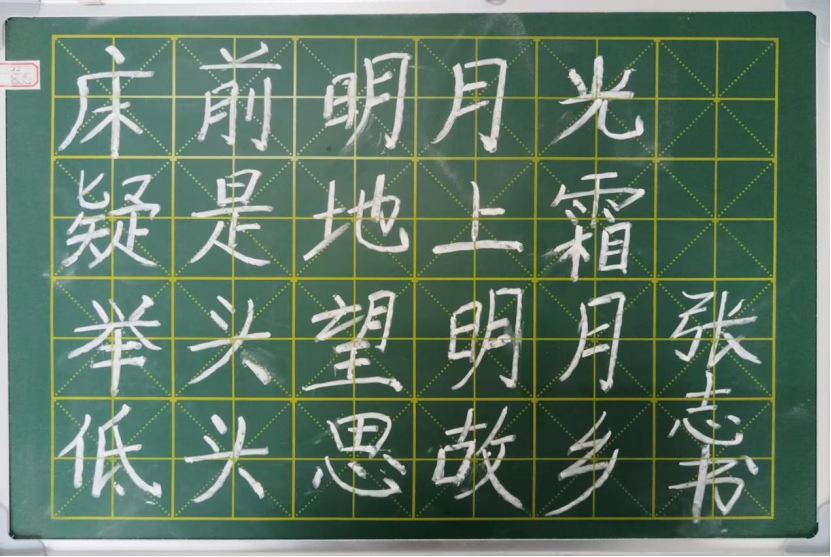 床前明月光
疑是地上霜
举头望明月
低头思故乡
张志书